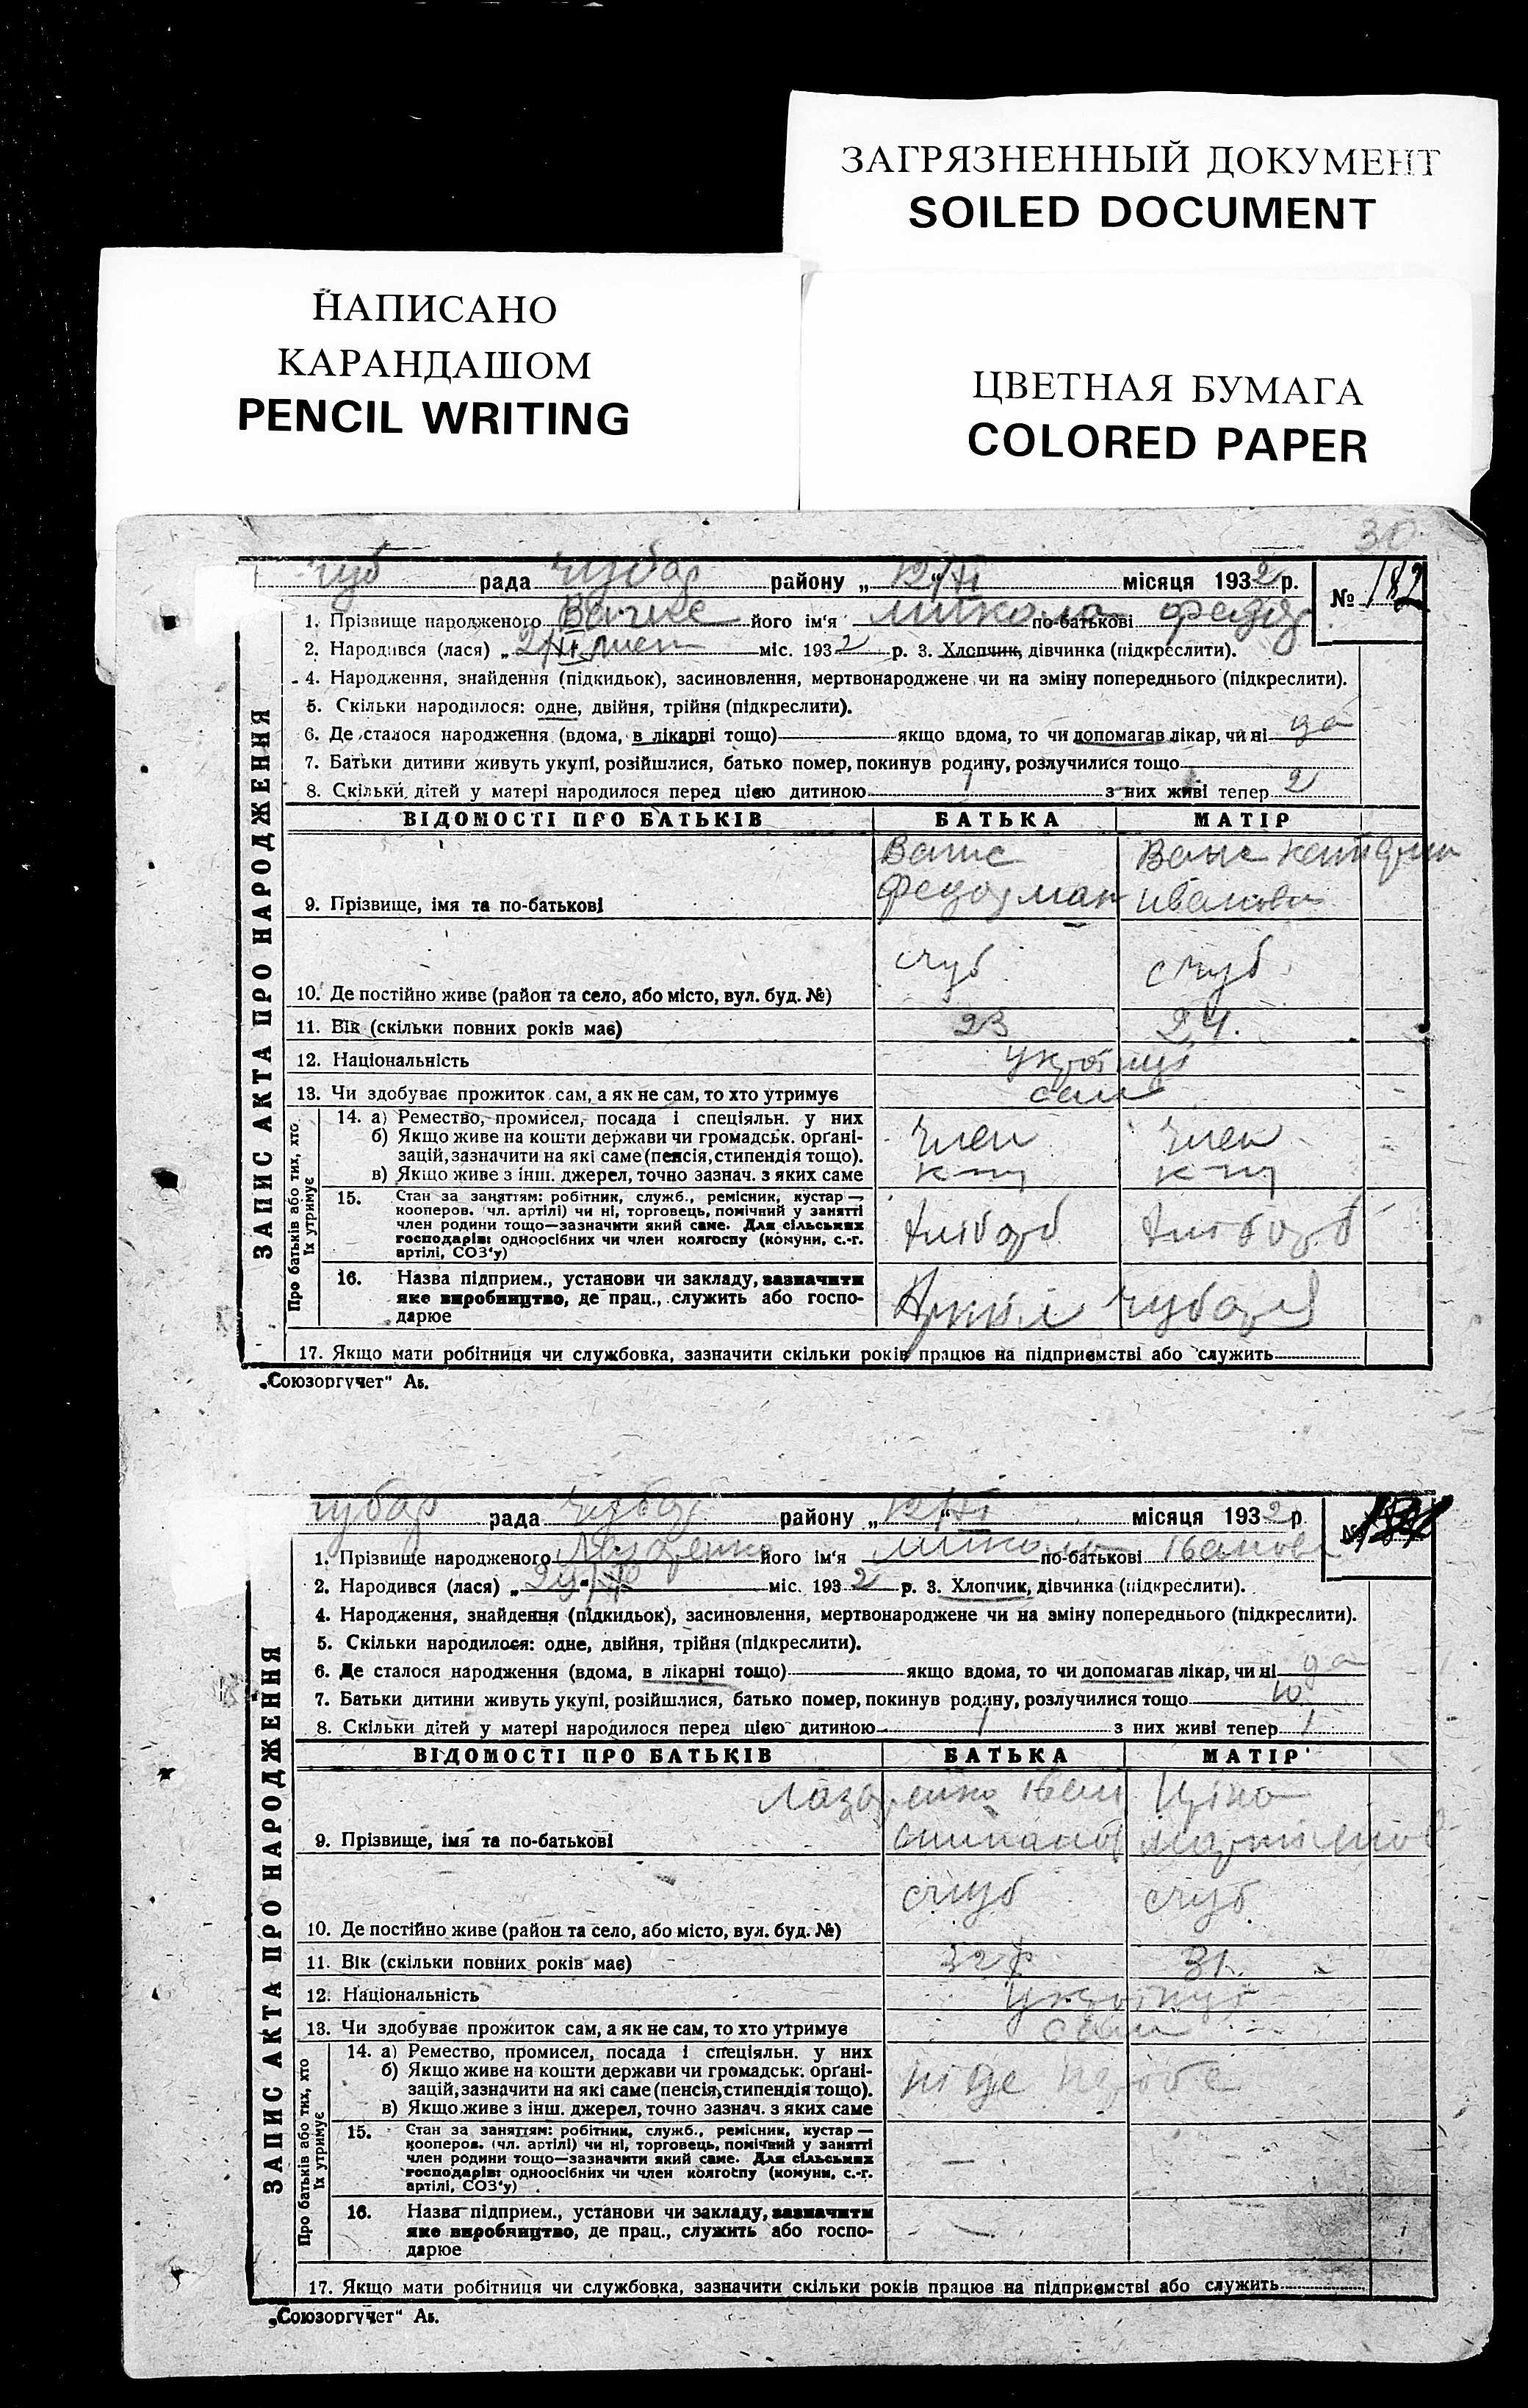 ЗАГРЯЗНЕННЫЙ ДОКУМЕНТ
SOILED DOCUMENT
НАПИСАНО
КАРАНДАШОМ
PENCIL WRITING
ЦВЕТНАЯ БУМАГА
COLORED PAPER
30
ЗАПИС АКТА ПРО НАРОДЖЕННЯ
Чуб рада Чубар району „12/XI“ місяця 1932 р. № 182
1. Прізвище народженого його ім'я Микола по-батькові Федор
2. Народився (лася) „2/XI лист міс. 1932 р. 3. Хлопчик, дівчинка (підкреслити).
4. Народження, знайдення (підкидьок), засиновлення, мертвонароджене чи на зміну попереднього (підкреслити).
5. Скільки народилося: одне, двійня, трійня (підкреслити).
6. Де сталося народження (вдома, в лікарні тощо) якщо вдома, то чи допомагав лікар, чи ні да
7. Батьки дитини живуть укупі, розійшлися, батько помер, покинув родину, розлучилися тощо
8. Скільки дітей у матері народилося перед цією дитиною 1 з них живі тепер 2
ВІДОМОСТІ ПРО БАТЬКІВ БАТЬКА МАТІР
9. Прізвище, імя та по-батькові
10. Де постійно живе (район та село, або місто, вул. буд. №) с Чуб с Чуб
11. Вік (скільки повних років має) 23 24.
12. Національність
13. Чи здобуває прожиток сам, а як не сам, то хто утримує сам
Про батьків або тих, хто їх утримує
14. а) Ремество, промисел, посада і спеціяльн. у них
б) Якщо живе на кошти держави чи громадськ. органі-
зацій, зазначити на які саме (пенсія, стипендія тощо).
в) Якщо живе з інш. джерел, точно зазнач. з яких саме
член член
15. Стан за заняттям: робітник, служб., ремісник, кустар —
кооперов. (чл. артілі) чи ні, торговець, помічний у занятті
член родини тощо—зазначити який саме. Для сільських
господарів: одноосібних чи член колгоспу (комуни, с.-г.
артілі, СОЗ'у)
хлібороб хлібороб
16. Назва підприєм., установи чи закладу, зазначити
яке виробництво, де прац., служить або госпо-
дарює
Артіл Чубаря
17. Якщо мати робітниця чи службовка, зазначити скільки років працює на підприємстві або служить
„Союзоргучет“ А5.
ЗАПИС АКТА ПРО НАРОДЖЕННЯ
Чубар рада Чубар району „12/XI“ місяця 1932 р. №
1. Прізвище народженого Лазаренко його ім'я Микола по-батькові Іванов
2. Народився (лася) міс. 1932 р. 3. Хлопчик, дівчинка (підкреслити).
4. Народження, знайдення (підкидьок), засиновлення, мертвонароджене чи на зміну попереднього (підкреслити).
5. Скільки народилося: одне, двійня, трійня (підкреслити).
6. Де сталося народження (вдома, в лікарні тощо) якщо вдома, то чи допомагав лікар, чи ні да
7. Батьки дитини живуть укупі, розійшлися, батько помер, покинув родину, розлучилися тощо
8. Скільки дітей у матері народилося перед цією дитиною 1 з них живі тепер 1
ВІДОМОСТІ ПРО БАТЬКІВ БАТЬКА МАТІР
Лазаренко Іван
9. Прізвище, імя та по-батькові
10. Де постійно живе (район та село, або місто, вул. буд. №) с Чуб с Чуб
11. Вік (скільки повних років має) 32 р 31.
12. Національність
13. Чи здобуває прожиток сам, а як не сам, то хто утримує сам
Про батьків або тих, хто їх утримує
14. а) Ремество, промисел, посада і спеціяльн. у них
б) Якщо живе на кошти держави чи громадськ. органі-
зацій, зазначити на які саме (пенсія, стипендія тощо).
в) Якщо живе з інш. джерел, точно зазнач. з яких саме
15. Стан за заняттям: робітник, служб., ремісник, кустар —
кооперов. (чл. артілі) чи ні, торговець, помічний у занятті
член родини тощо—зазначити який саме. Для сільських
господарів: одноосібних чи член колгоспу (комуни, с.-г.
артілі, СОЗ'у)
16. Назва підприєм., установи чи закладу, зазначити
яке виробництво, де прац., служить або госпо-
дарює
17. Якщо мати робітниця чи службовка, зазначити скільки років працює на підприємстві або служить
„Союзоргучет“ А5.